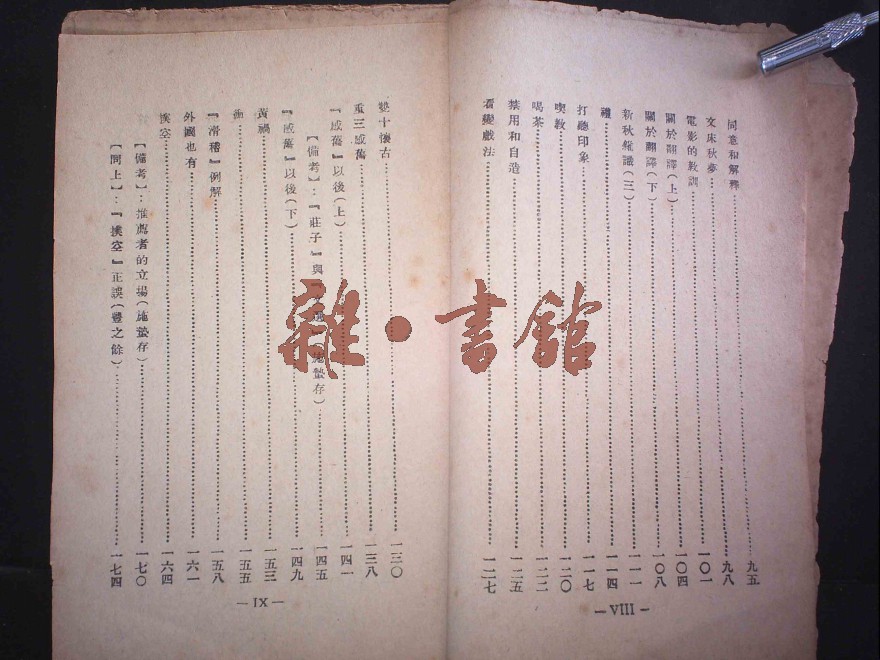 同意和解釋……九五
文床秋夢……九八
電影的教訓……一〇一
關於翻譯（上）……一〇四
關於翻譯（下）……一〇八
新秋雜識（三）……一一一
禮……一一四
打聽印象……一一七
喫教……一二〇
喝茶……一二二
禁用和自造……一二五
看變戲法……一二七
— VIII —
雙十懷古……一三〇
重三感舊……一三八
『感舊』以後（上）……一四一
【備考】：『莊子』與 選 施蟄存）……一四五
『感舊』以後（下）……一四九
黃禍……一五三
衝……一五五
『滑稽』例解……一五八
外國也有……一六一
撲空……一六四
【備考】：推薦者的立場（施蟄存）……一七〇
【同上】：『撲空』正誤（豐之餘）……一七四
— IX —
雜·書館